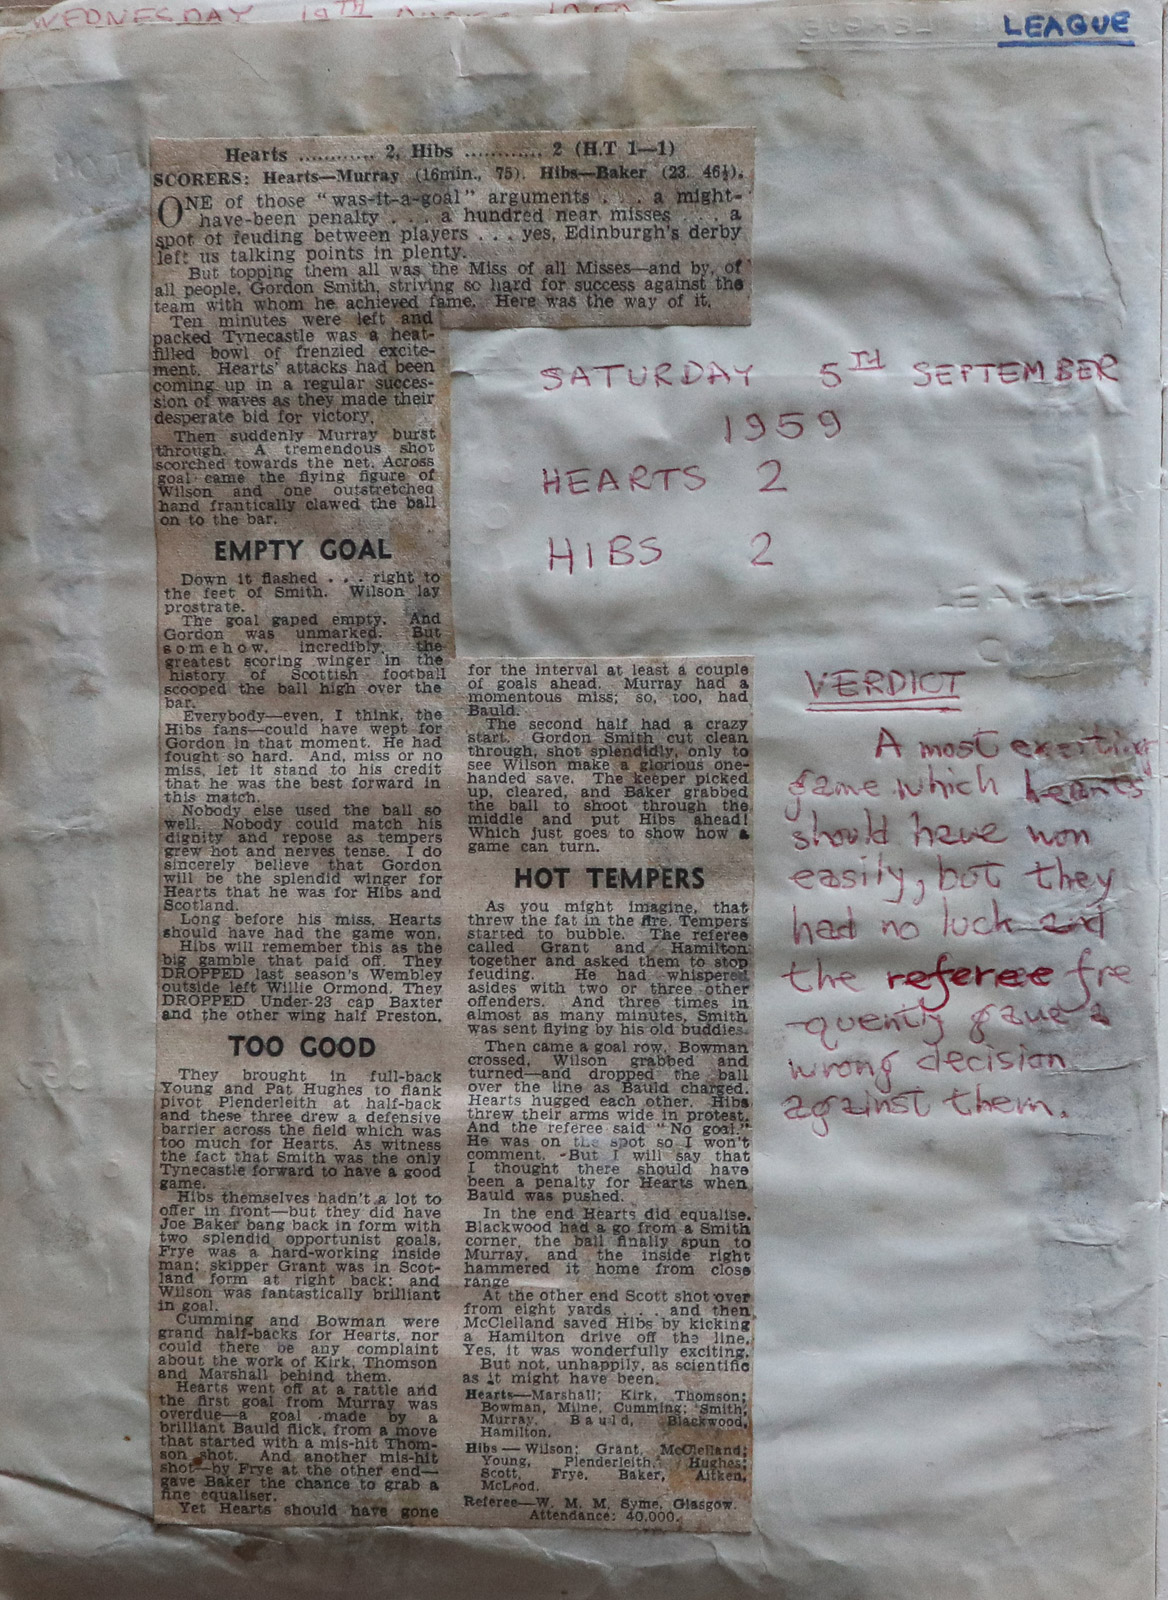 WEDNESDAY 19TH
LEAGUE
Hearts ............ 2, Hibs ............ 2 (H.T 1—1)
SCORERS: Hearts—Murray (16min., 75). Hibs—Baker (23. 46½).
ONE of those "was-it-a-goal" arguments . . . a might-
have-been penalty . . . a hundred near misses . . . a
spot of feuding between players . . . yes, Edinburgh's derby
left us talking points in plenty.
But topping them all was the Miss of all Misses—and by, of
all people, Gordon Smith, striving so hard for success against the
team with whom he achieved fame. Here was the way of it.
Ten minutes were left and
packed Tynecastle was a heat-
filled bowl of frenzied excite-
ment. Hearts' attacks had been
coming up in a regular succes-
sion of waves as they made their
desperate bid for victory.
Then suddenly Murray burst
through. A tremendous shot
scorched towards the net. Across
goal came the flying figure of
Wilson and one outstretched
hand frantically clawed the ball
on to the bar.
EMPTY GOAL
Down it flashed . . . right to
the feet of Smith. Wilson lay
prostrate.
The goal gaped empty. And
Gordon was unmarked. But
somehow, incredibly, the
greatest scoring winger in the
history of Scottish football
scooped the ball high over the
bar.
Everybody—even, I think, the
Hibs fans—could have wept for
Gordon in that moment. He had
fought so hard. And, miss or no
miss, let it stand to his credit
that he was the best forward in
this match.
Nobody else used the ball so
well. Nobody could match his
dignity and repose as tempers
grew hot and nerves tense. I do
sincerely believe that Gordon
will be the splendid winger for
Hearts that he was for Hibs and
Scotland.
Long before his miss, Hearts
should have had the game won.
Hibs will remember this as the
big gamble that paid off. They
DROPPED last season's Wembley
outside left Willie Ormond. They
DROPPED Under-23 cap Baxter
and the other wing half Preston.
TOO GOOD
They brought in full-back
Young and Pat Hughes to flank
pivot Plenderleith at half-back
and these three drew a defensive
barrier across the field which was
too much for Hearts. As witness
the fact that Smith was the only
Tynecastle forward to have a good
game.
Hibs themselves hadn't a lot to
offer in front—but they did have
Joe Baker bang back in form with
two splendid opportunist goals.
Frye was a hard-working inside
man; skipper Grant was in Scot-
land form at right back; and
Wilson was fantastically brilliant
in goal.
Cumming and Bowman were
grand half-backs for Hearts, nor
could there be any complaint
about the work of Kirk, Thomson
and Marshall behind them.
Hearts went off at a rattle and
the first goal from Murray was
overdue—a goal made by a
brilliant Bauld flick, from a move
that started with a mis-hit Thom-
son shot. And another mis-hit
shot—by Frye at the other end—
gave Baker the chance to grab a
fine equaliser.
Yet Hearts should have gone
for the interval at least a couple
of goals ahead. Murray had a
momentous miss; so, too, had
Bauld.
The second half had a crazy
start. Gordon Smith cut clean
through, shot splendidly, only to
see Wilson make a glorious one-
handed save. The keeper picked
up, cleared, and Baker grabbed
the ball to shoot through the
middle and put Hibs ahead!
Which just goes to show how a
game can turn.
HOT TEMPERS
As you might imagine, that
threw the fat in the fire. Tempers
started to bubble. The referee
called Grant and Hamilton
together and asked them to stop
feuding. He had whispered
asides with two or three other
offenders. And three times in
almost as many minutes, Smith
was sent flying by his old buddies.
Then came a goal row. Bowman
crossed, Wilson grabbed and
turned—and dropped the ball
over the line as Bauld charged.
Hearts hugged each other. Hibs
threw their arms wide in protest.
And the referee said "No goal."
He was on the spot so I won't
comment. But I will say that
I thought there should have
been a penalty for Hearts when
Bauld was pushed.
In the end Hearts did equalise.
Blackwood had a go from a Smith
corner, the ball finally spun to
Murray, and the inside right
hammered it home from close
range
At the other end Scott shot over
from eight yards . . . and then
McClelland saved Hibs by kicking
a Hamilton drive off the line.
Yes, it was wonderfully exciting.
But not, unhappily, as scientific
as it might have been.
Hearts—Marshall; Kirk, Thomson;
Bowman, Milne, Cumming; Smith,
Murray, Bauld, Blackwood,
Hamilton.
Hibs—Wilson; Grant, McClelland;
Young, Plenderleith, Hughes;
Scott, Frye, Baker, Aitken,
McLeod.
Referee—W. M. M. Syme, Glasgow.
Attendance: 40,000.
SATURDAY 5TH SEPTEMBER
1959
HEARTS 2
HIBS 2
VERDICT
A most exciting
game which hearts
should have won
easily, but they
had no luck and
the referee fre
-quently gave a
wrong decision
against them.